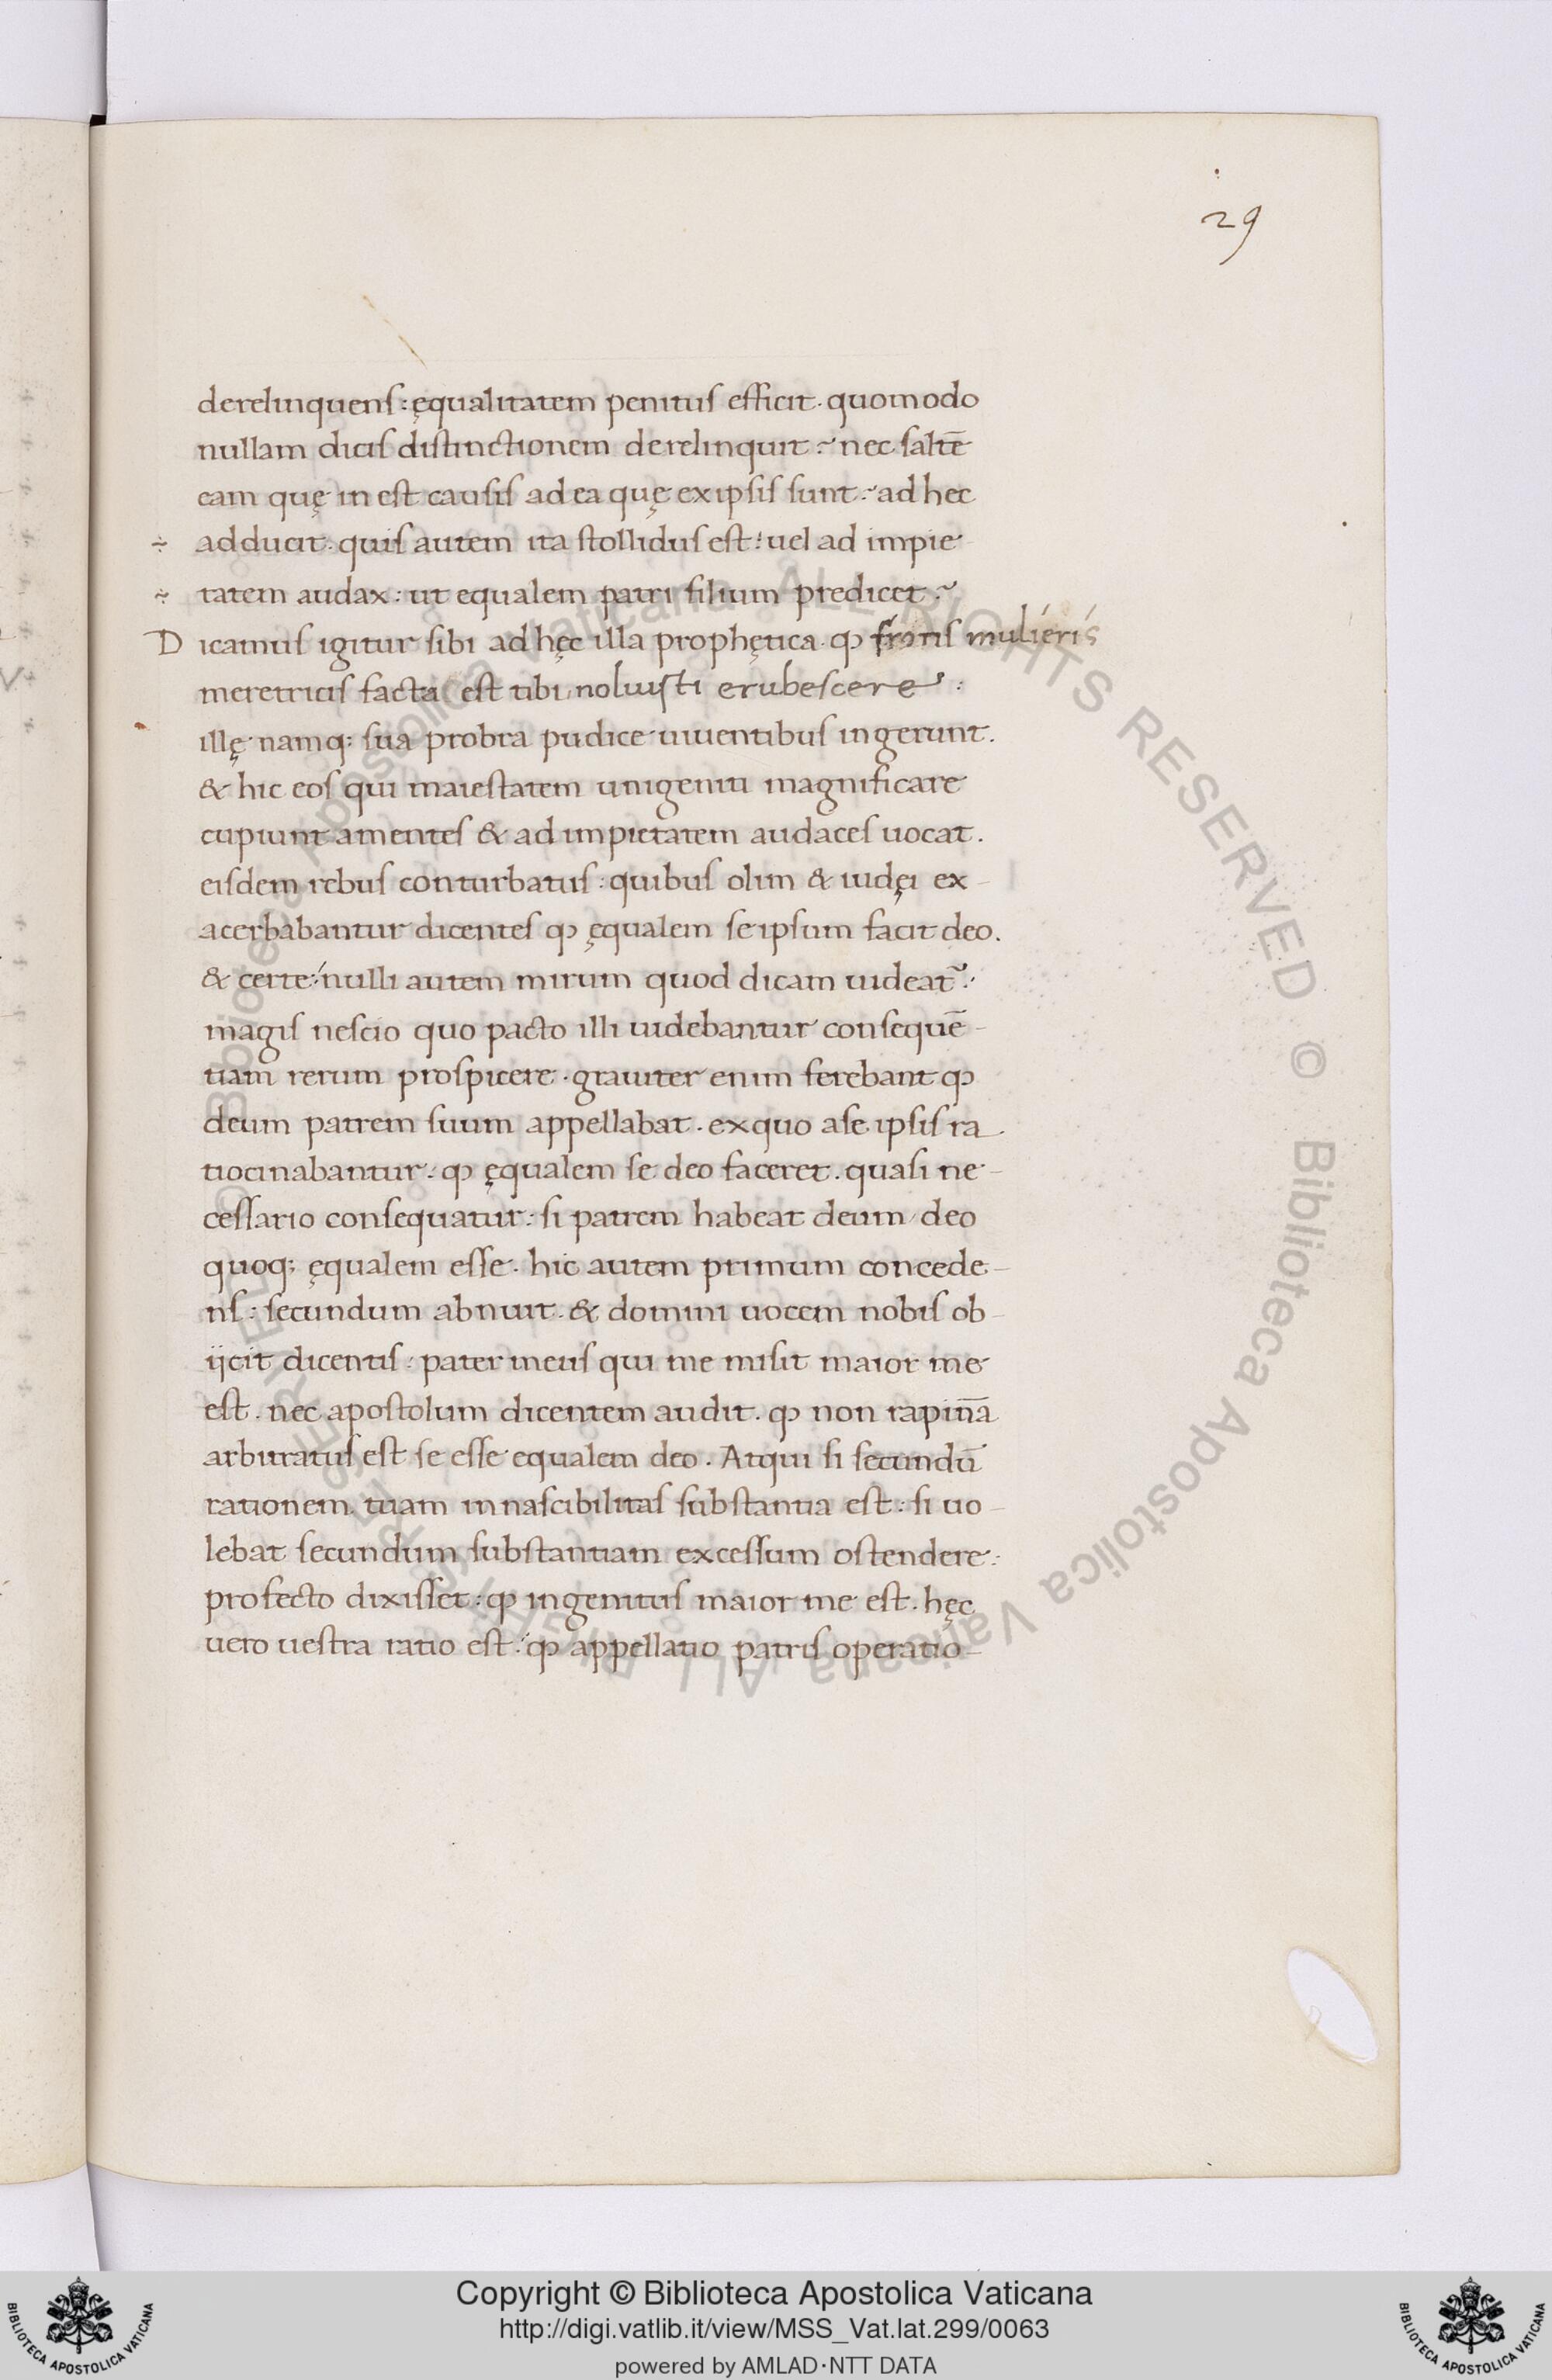 29
derelinquens: ęqualitatem penitus efficit. quomodo
nullam dicis distinctionem derelinquit? nec saltē
eam quę in est causis ad ea quę ex ipsis sunt? ad hec
÷ adducit. quis autem ita stollidus est: uel ad impie
÷ tatem audax: ut equalem patri filium predicet?
Dicamus igitur sibi ad hęc illa prophętica. ꝙ frons mulieris
meretricis facta est tibi, noluisti erubescere:
illę namq; sua probra pudice uiuentibus ingerunt.
& hic eos qui maiestatem unigeniti magnificare
cupiunt amentes & ad impietatem audaces uocat.
eisdem rebus conturbatus: quibus olim & iudęi ex-
acerbabantur dicentes ꝙ ęqualem se ipsum facit deo.
& certe: nulli autem mirum quod dicam uideat᷑:
magis nescio quo pacto illi uidebantur consequē-
tiam rerum prospicere. grauiter enim ferebant ꝙ
deum patrem suum appellabat. ex quo a se ipsis ra-
tiocinabantur: ꝙ ęqualem se deo faceret. quasi ne-
cessario consequatur: si patrem habeat deum, deo
quoq; ęqualem esse. hic autem primum concede-
ns: secundum abnuit. & domini uocem nobis ob-
ijcit dicentis: pater meus qui me misit maior me
est. nec apostolum dicentem audit. ꝙ non rapinā
arbitratus est se esse equalem deo. Atqui si secundū
rationem tuam innascibilitas substantia est: si uo-
lebat secundum substantiam excessum ostendere:
profecto dixisset: ꝙ ingenitus maior me est. hęc
uero uestra ratio est: ꝙ appellatio patris operatio-
© Biblioteca Apostolica Vaticana ALL RIGHTS RESERVED © Biblioteca Apostolica Vaticana ALL RIGHTS RESERVED
Copyright © Biblioteca Apostolica Vaticana
http://digi.vatlib.it/view/MSS_Vat.lat.299/0063
powered by AMLAD·NTT DATA
BIBLIOTECA APOSTOLICA VATICANA
BIBLIOTECA APOSTOLICA VATICANA